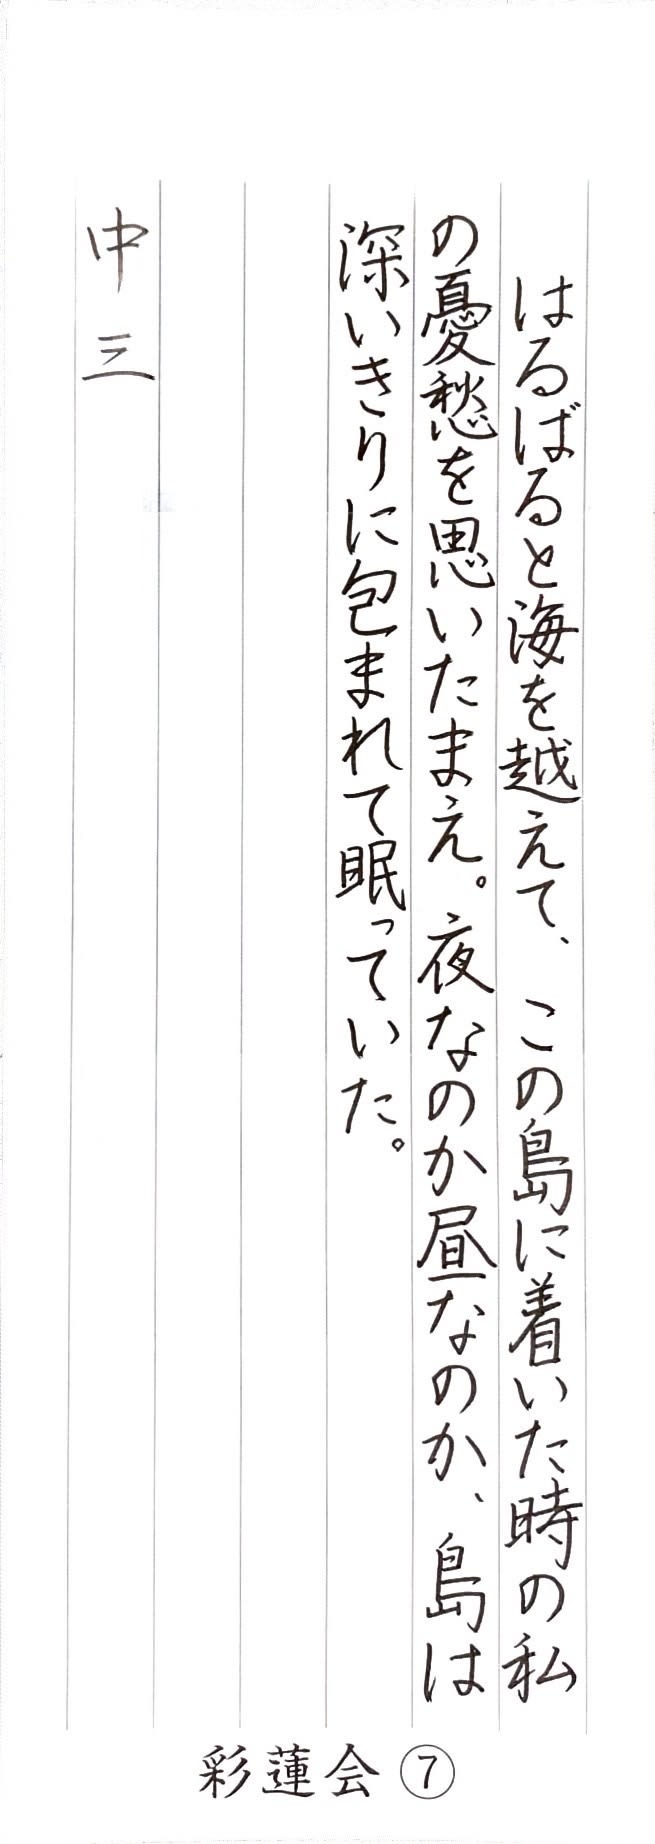 はるばると海を越えて、この島に着いた時の私
の憂愁を思いたまえ。夜なのか昼なのか、島は
深いきりに包まれて眠っていた。
中三
彩蓮会⑦